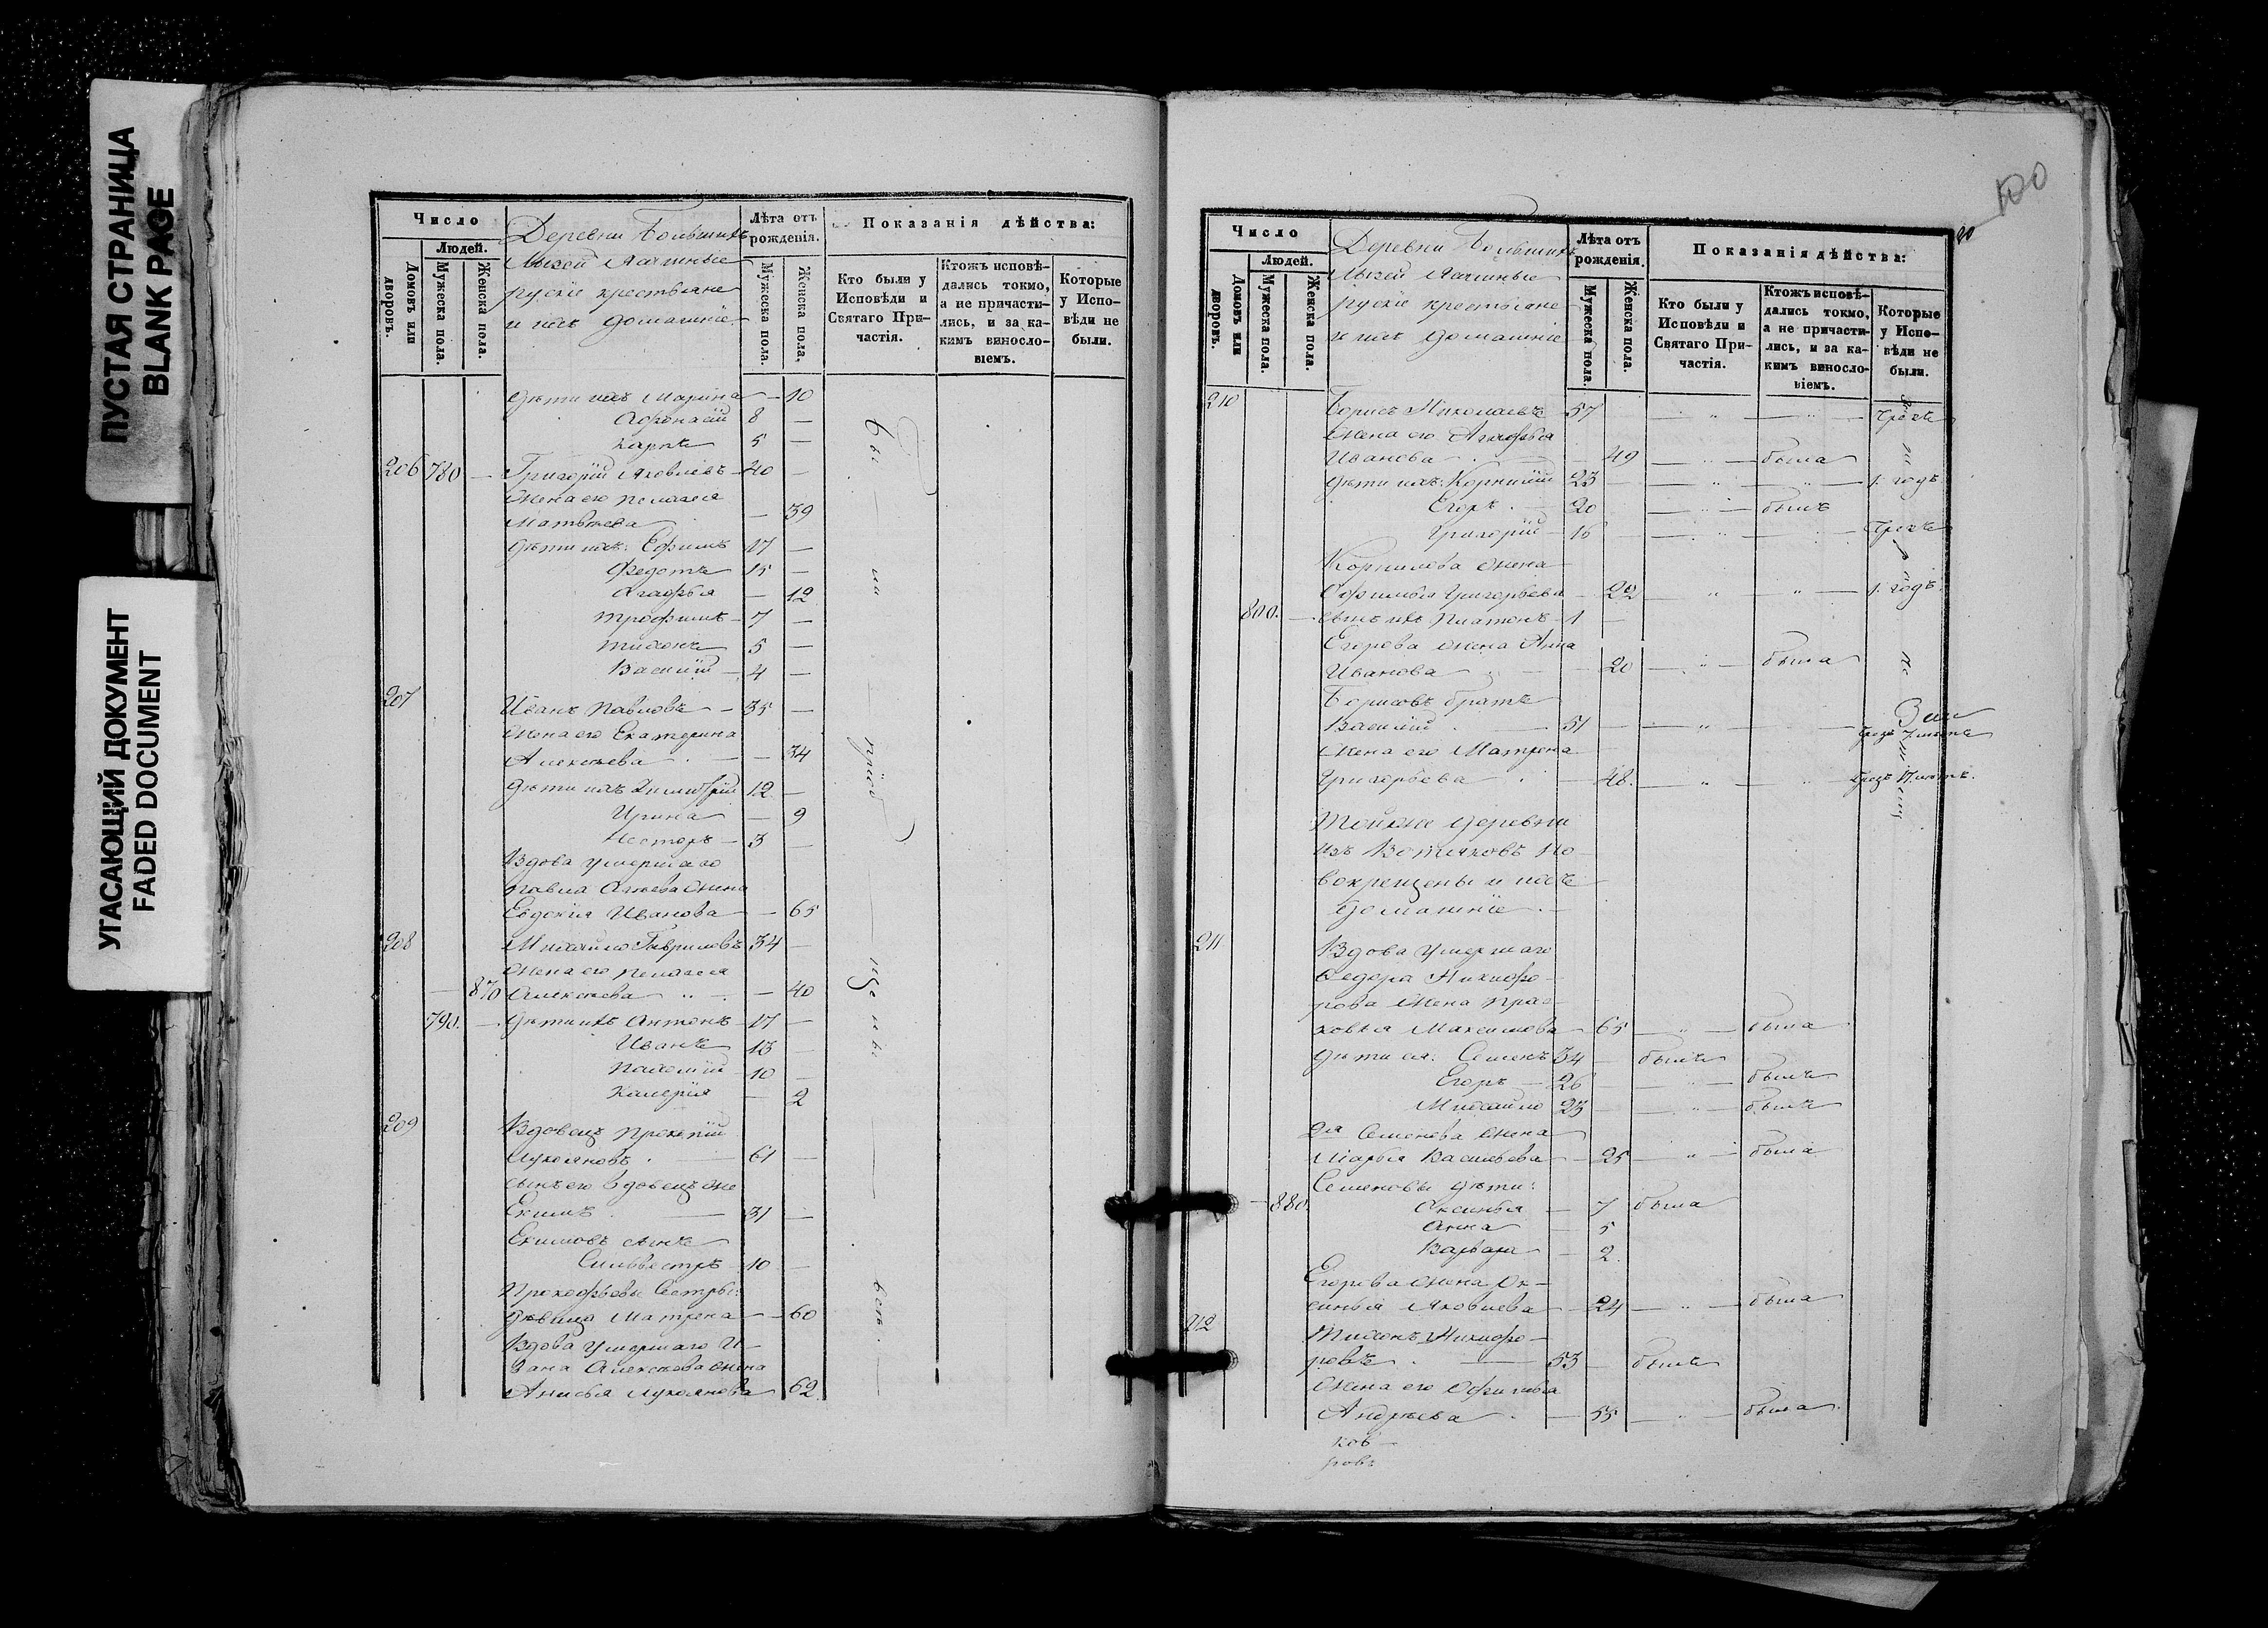 ПУСТАЯ СТРАНИЦА
BLANK PAGE
УГАСАЮЩИЙ ДОКУМЕНТ
FADED DOCUMENT
Число
Людей.
Домовъ или дворовъ.
Мужеска пола.
Женска пола.
Деревни Большихъ
рускіе крестьяне
и ихъ домашніе.
Лѣта отъ рожденія.
Мужеска пола.
Женска пола.
Показанія дѣйства:
Кто были у Исповѣди и Святаго Причастія.
Ктожъ исповѣдались токмо, а не причастились, и за какимъ винословіемъ.
Которые у Исповѣди не были.
дѣти ихъ Марина — 10
Афонасій 8 —
Карпъ 5 —
206 780 — Григорій Яковлевъ 40 —
Жена его Пелагея
Матвѣева — 39
дѣти ихъ: Ефимъ 17 —
Федотъ 15 —
Агафья — 12
Трофимъ 7 —
Тихонъ 5 —
Василій 4 —
207 Иванъ Павловъ 35 —
Жена его Екатерина
Алексѣева — 34
дѣти ихъ Димитрій 12 —
Ирина — 9
Несторъ 3 —
Вдова умершаго
Павла жена
Евдокия Иванова — 65
208 Михайло Гавриловъ 34 —
Жена его Пелагея
— 870 Алексѣева — 40
790. — дѣти ихъ Антонъ 17 —
Иванъ 13 —
Пахомій 10 —
Калерія — 2
209 Вдовецъ Прокопій
Лукояновъ 61 —
сынъ его вдовецъ же
Екимъ 31 —
Екимовъ сынъ
Сильвестръ 10 —
Прокофьевы сестры:
дѣвица Матрена — 60
Вдова умершаго И-
вана Алексѣева жена
Анисья Лукоянова 62
100
Число
Людей.
Домовъ или дворовъ.
Мужеска пола.
Женска пола.
Деревни Большихъ
рускіе крестьяне
и ихъ домашніе
Лѣта отъ рожденія.
Мужеска пола.
Женска пола.
Показанія дѣйства:
Кто были у Исповѣди и Святаго Причастія.
Ктожъ исповѣдались токмо, а не причастились, и за какимъ винословіемъ.
Которые у Исповѣди не были.
210 Борисъ Николаевъ 57
Жена его Агафья
Иванова — 49 — „ — была
дѣти ихъ: Корнилій 23 — 1. годъ
Егоръ 20 — былъ
Григорій 16
Корнилова жена
Офимья Григорьева — 22 — 1. годъ.
800. — сынъ ихъ Платонъ 1 —
Егорова жена Анна
Иванова — 20 — „ — была
Борисовъ братъ
Василій 51
Жена его Матрена
Григорьева — 48.
Тойже деревни
изъ Вотяковъ но-
вокрещены и ихъ
домашніе
211 Вдова умершаго
Федора Никифо-
рова жена Прас-
ковья Максимова 65 — „ — была
дѣти ея: Семенъ 34 — былъ
Егоръ 26 — „ — былъ
Михайло 23 — „ — былъ
2я Семенова жена
Марья Васильева — 25 — „ — была
Семеновы дѣти:
— 880. Аксинья — 7 была
Анна — 5
Варвара — 2.
Егорова жена Ок-
синья Яковлева — 24 — „ — была
212 Тихонъ Никифо-
ровъ 53 — былъ
Жена его Офимья
Андреева — 55 — „ — была.